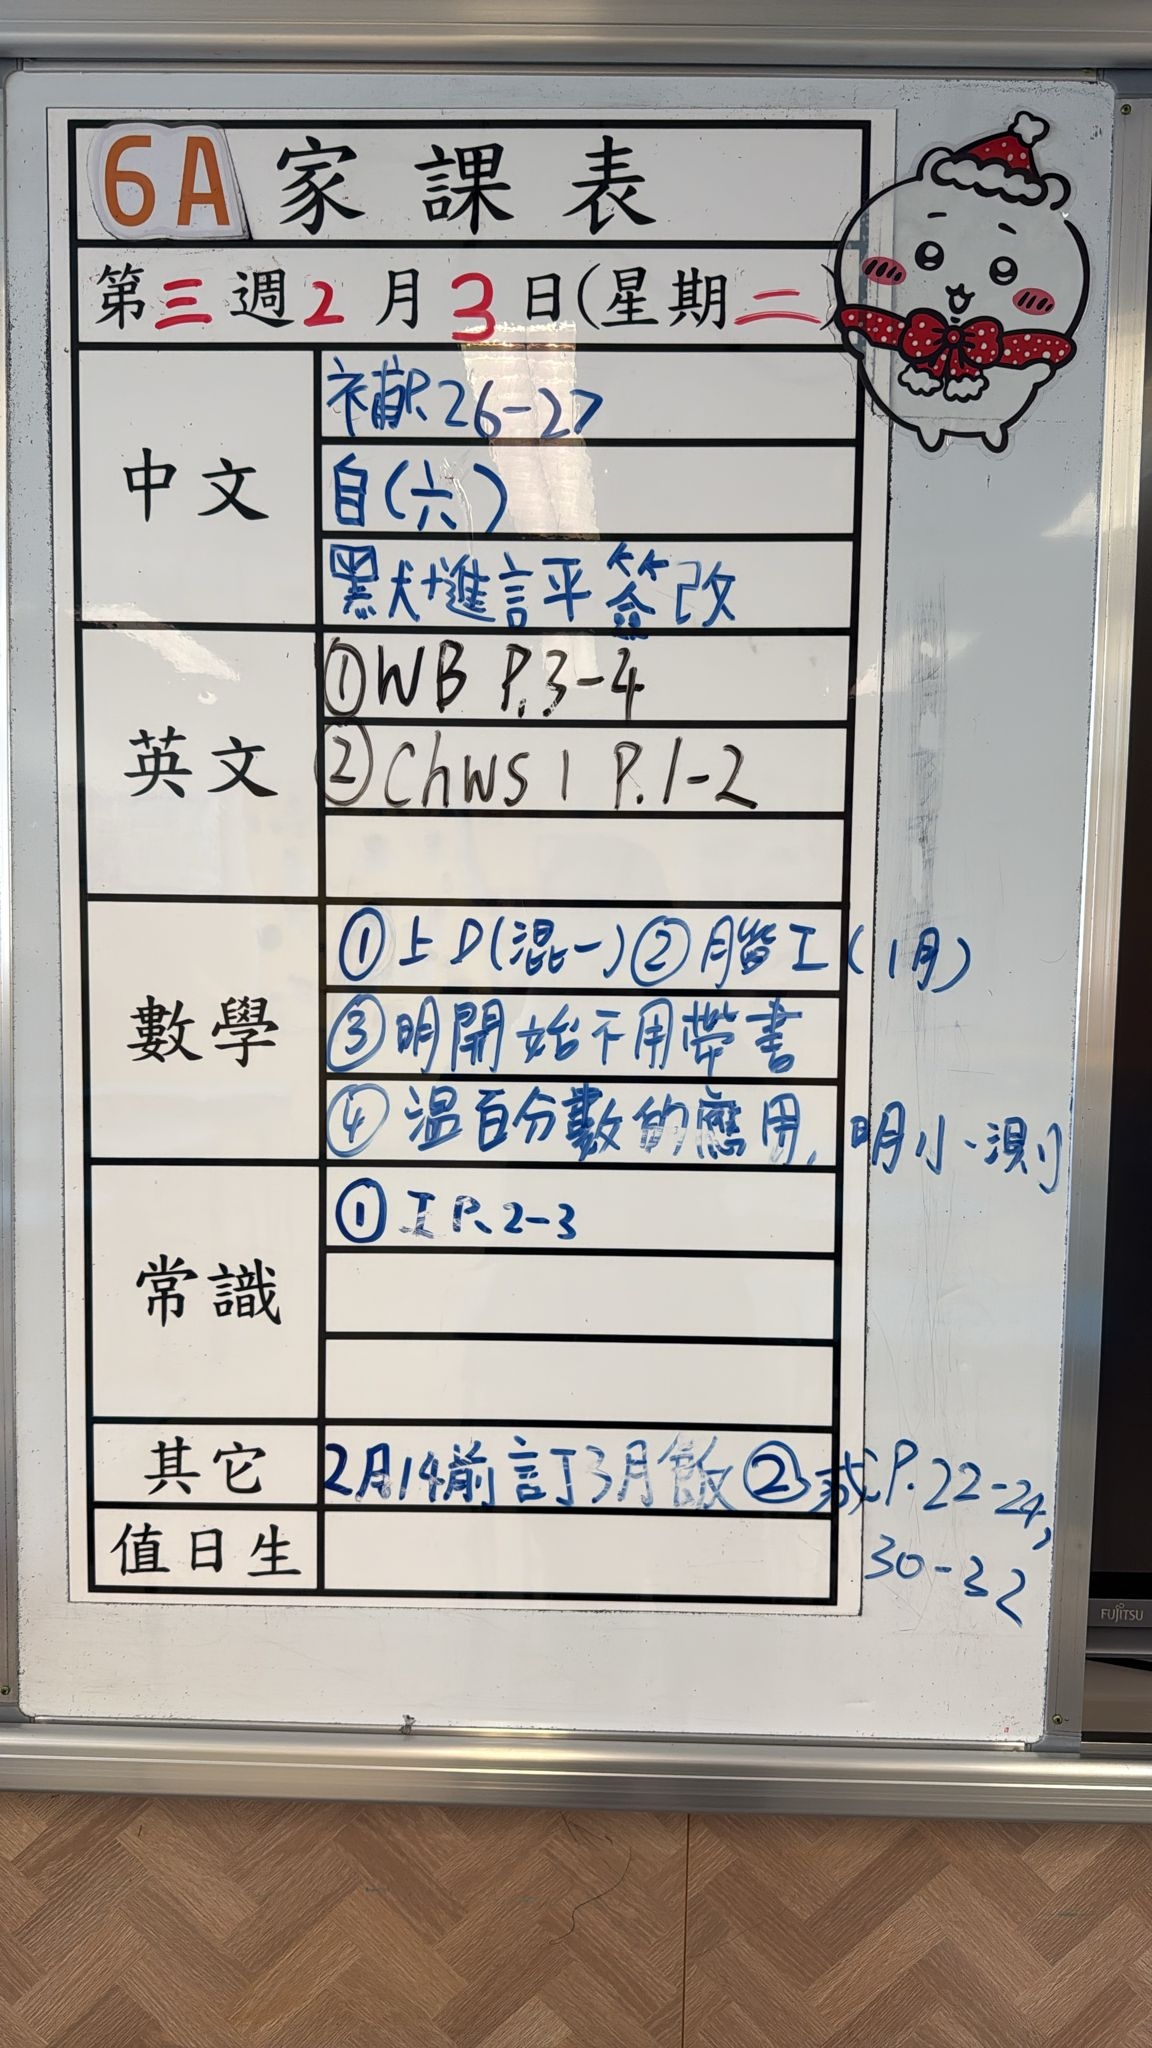 6A 家課表
第三週2月3日(星期二)
中文
補P.26-27
自(六)
默+進評簽改
英文
①WB P.3-4
②ChWS 1 P.1-2
數學
①上D(混一)②階工(1月)
③明開始不用帶書
④溫百分數的應用,明小測
常識
①工P.2-3
其它
2月14前訂3月飯②成P.22-24,
30-32
值日生
FUJITSU